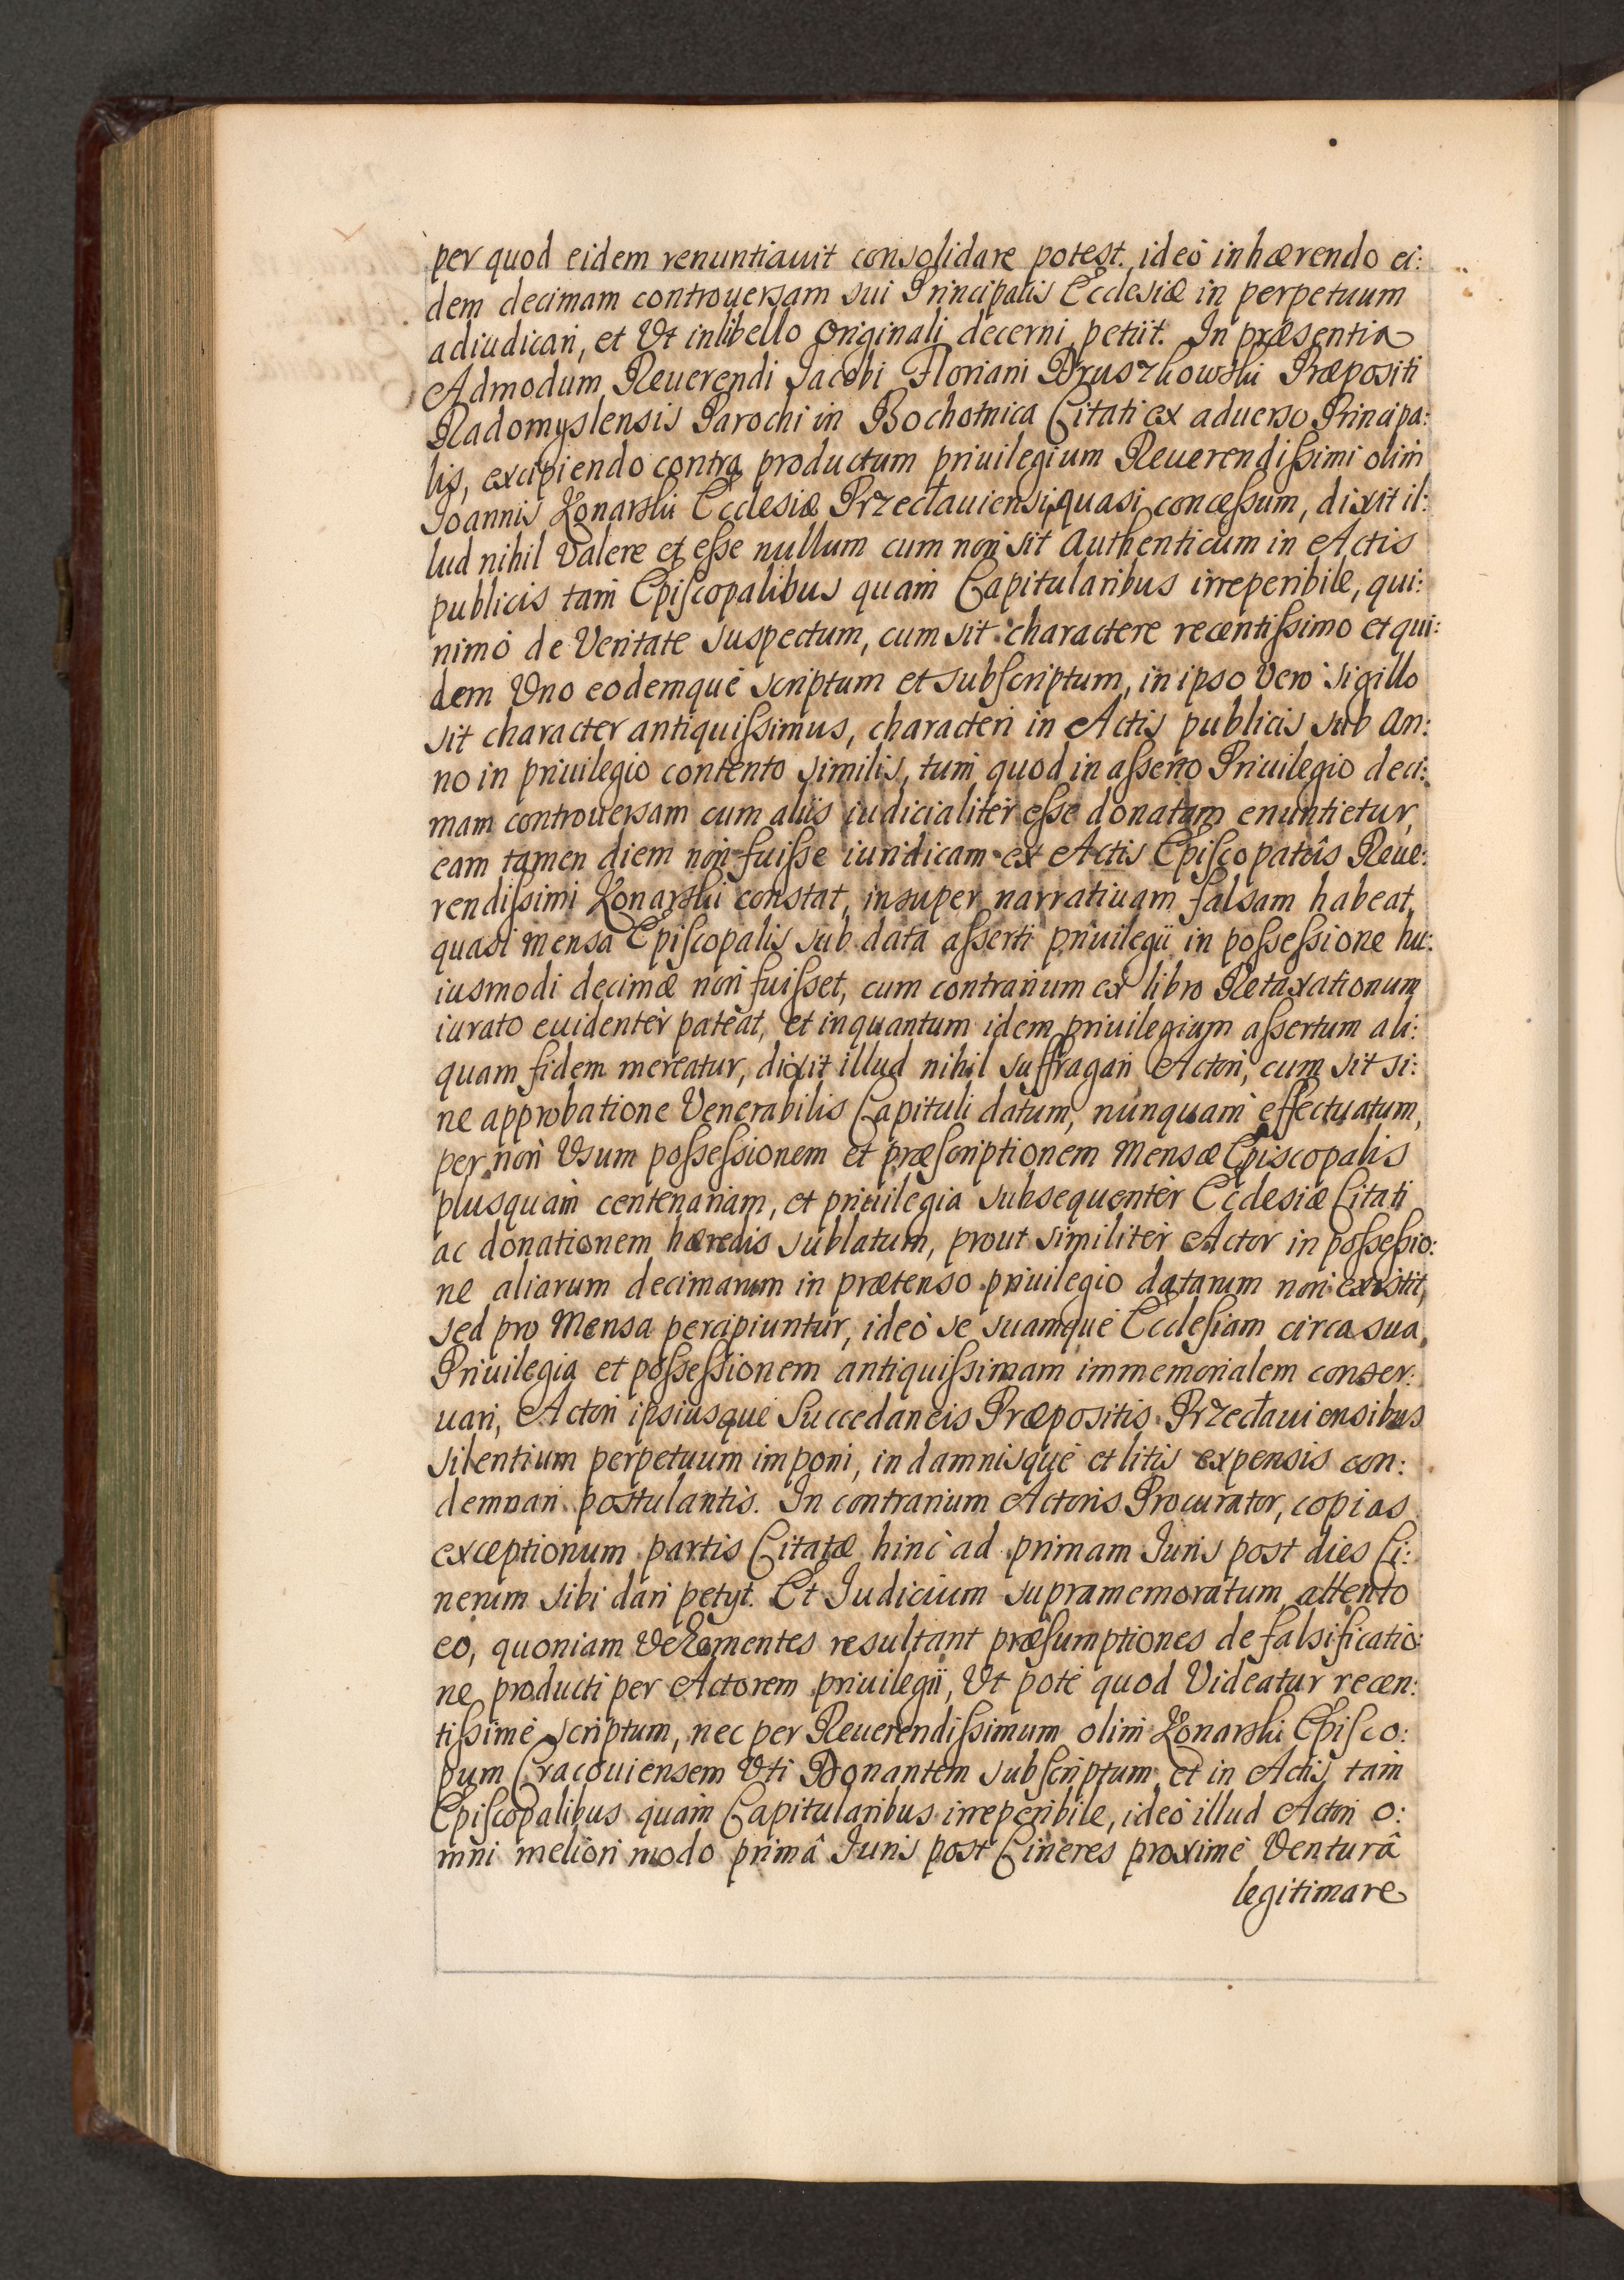 per quod eidem renuntiauit consolidare potest. ideó inhærendo ei:
dem decimam controuersam sui Principalis Ecclesiæ in perpetuum
adiudicari, et Vt in libello Originali decerni petiit. In præsentia
Admodum Reuerendi Jacobi Floriani Pruszkowski Præpositi
Radomyslensis Parochi in Bochotnica Citati ex aduerso Principa:
lis, excipiendo contra productum priuilegium Reuerendißimi olim
Joannis Konarski Ecclesiæ Przecłauiensi quasi conceßum, dixit il:
lud nihil Valere et eße nullum cum non sit Authenticum in Actis
publicis tam Episcopalibus quam Capitularibus irreperibile, qui:
nimó de Veritate suspectum, cum sit charactere recentißimo et qui:
dem Vno eodemque scriptum et subscriptum, in ipso Vero sigillo
sit character antiquißimus, characteri in Actis publicis sub An:
no in priuilegio contento similis, tum quod in aßerto Priuilegio deci:
mam controuersam cum aliis iudicialiter eße donatam enuntietur,
eam tamen diem non fuiße iuridicam ex Actis Episcopatûs Reue:
rendißimi Konarski constat, insuper narratiuam falsam habeat,
quasi mensa Episcopalis sub data aßerti priuilegii in poßeßione hu:
iusmodi decimæ non fuißet, cum contrarium ex libro Retaxationum
iurato euidentèr pateat, et inquantum idem priuilegium aßertum ali:
quam fidem mereatur, dixit illud nihil suffragari Actori, cum sit si:
ne approbatione Venerabilis Capituli datum, nunquam effectuatum,
per non Vsum poßeßionem et præscriptionem Mensæ Episcopalis
plusquam centenariam, et priuilegia subsequentèr Ecclesiæ Citati
ac donationem hæredis sublatum, prout similitèr Actor in poßeßio:
ne aliarum decimarum in prætenso priuilegio datarum non existit,
sed pro Mensa percipiuntur, ideó se suamque Ecclesiam circa sua
Priuilegia et poßeßionem antiquißimam immemorialem conser:
uari, Actori ipsiusque Succedaneis Præpositis Przecłauiensibus
silentium perpetuum imponi, in damnisque et litis expensis con:
demnari postulantis. In contrarium Actoris Procurator, copias
exceptionum partis Citatæ hinc ad primam Juris post dies Ci:
nerum sibi dari petyt. Et Judicium supramemoratum attento
eo, quoniam Vehementes resultant præsumptiones de falsificatio:
ne producti per Actorem priuilegii, Vt poté quod Videatur recen:
tißime scriptum, nec per Reuerendißimum olim Konarski Episco:
pum Cracouiensem Vti Donantem subscriptum, et in Actis tam
Episcopalibus quam Capitularibus irreperibile, ideó illud Actori o:
mni meliori modo primâ Juris post Cineres proximé Venturâ
legitimare